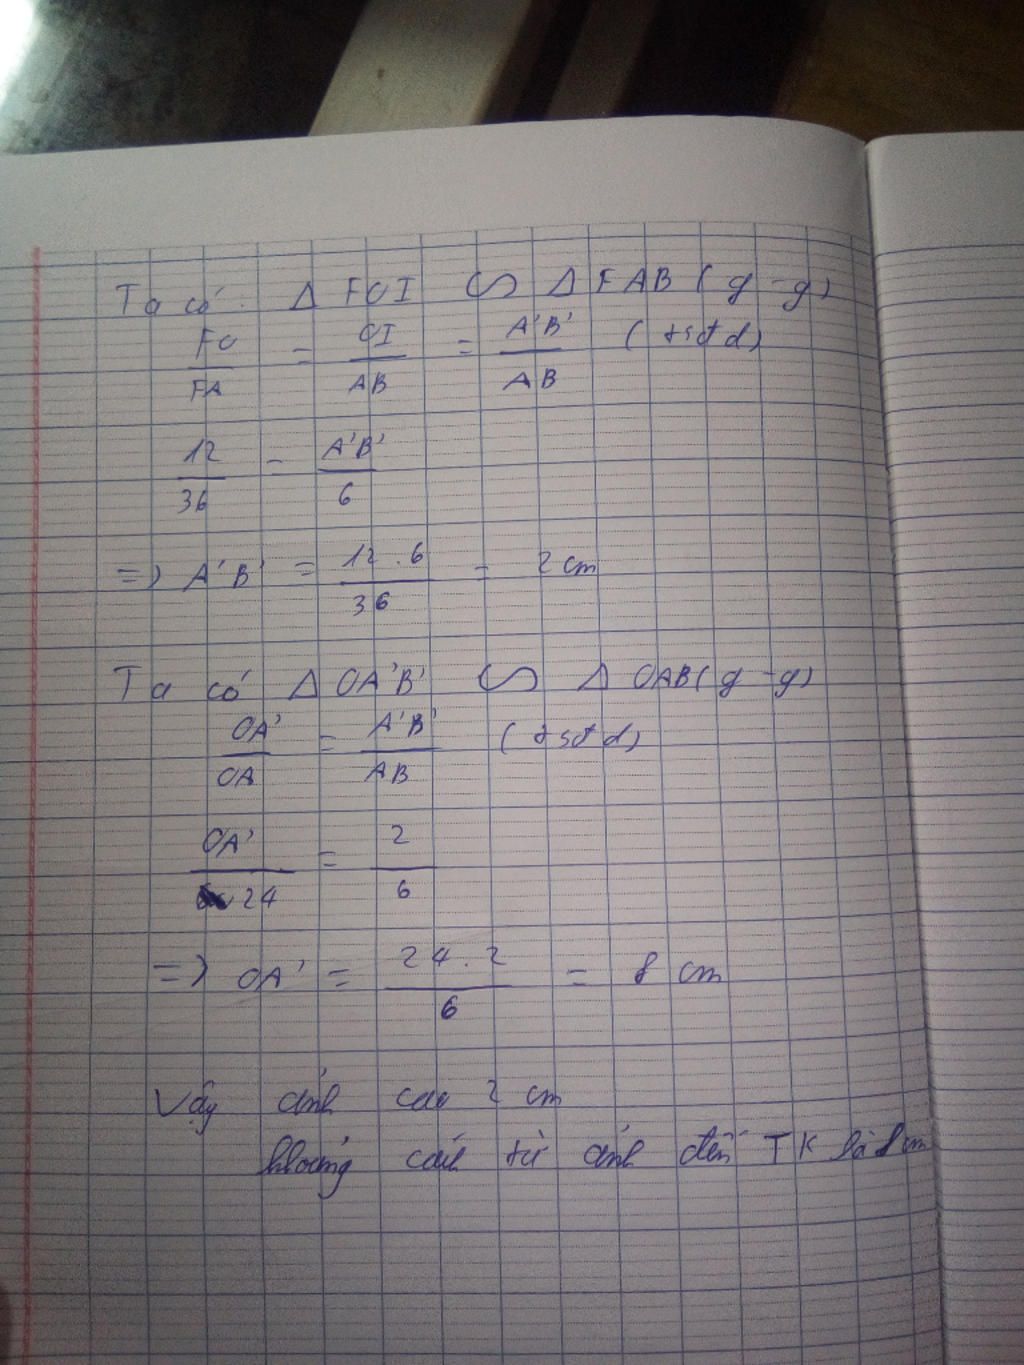 Ta có: Δ FOI ∽ Δ FAB (g-g)
FO/FA = OI/AB = A'B'/AB (tsđd)
12/36 = A'B'/6
=> A'B' = 12.6/36 = 2 cm
Ta có Δ OA'B' ∽ Δ OAB (g-g)
OA'/OA = A'B'/AB (tsđd)
OA'/24 = 2/6
=> OA' = 24.2/6 = 8 cm
Vậy ảnh cao 2 cm
khoảng cách từ ảnh đến TK là 8 cm